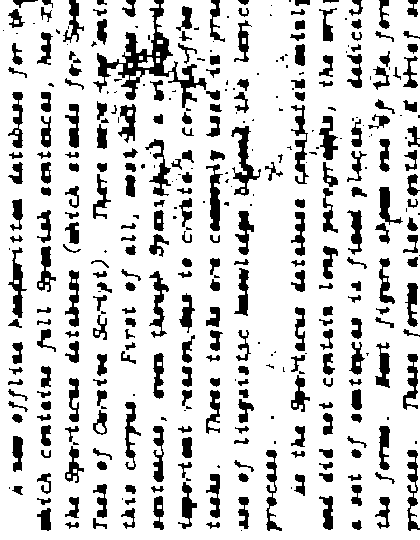 A new offline handwritten database for the
which contains full Spanish sentences, has
the Spartacus database (which stands for Spanish
Task of Cursive Script). There were two
this corpus. First of all, most databases do
sentences, even though Spanish is a
important reason was to create a corpus from
tasks. These tasks are commonly used in
use of linguistic knowledge beyond the lexicon
process.
As the Spartacus database consisted mainly
and did not contain long paragraphs, the
a set of sentences in fixed places: dedicated
the forms. Next figure shows one of the forms
process. These forms also contain a brief set